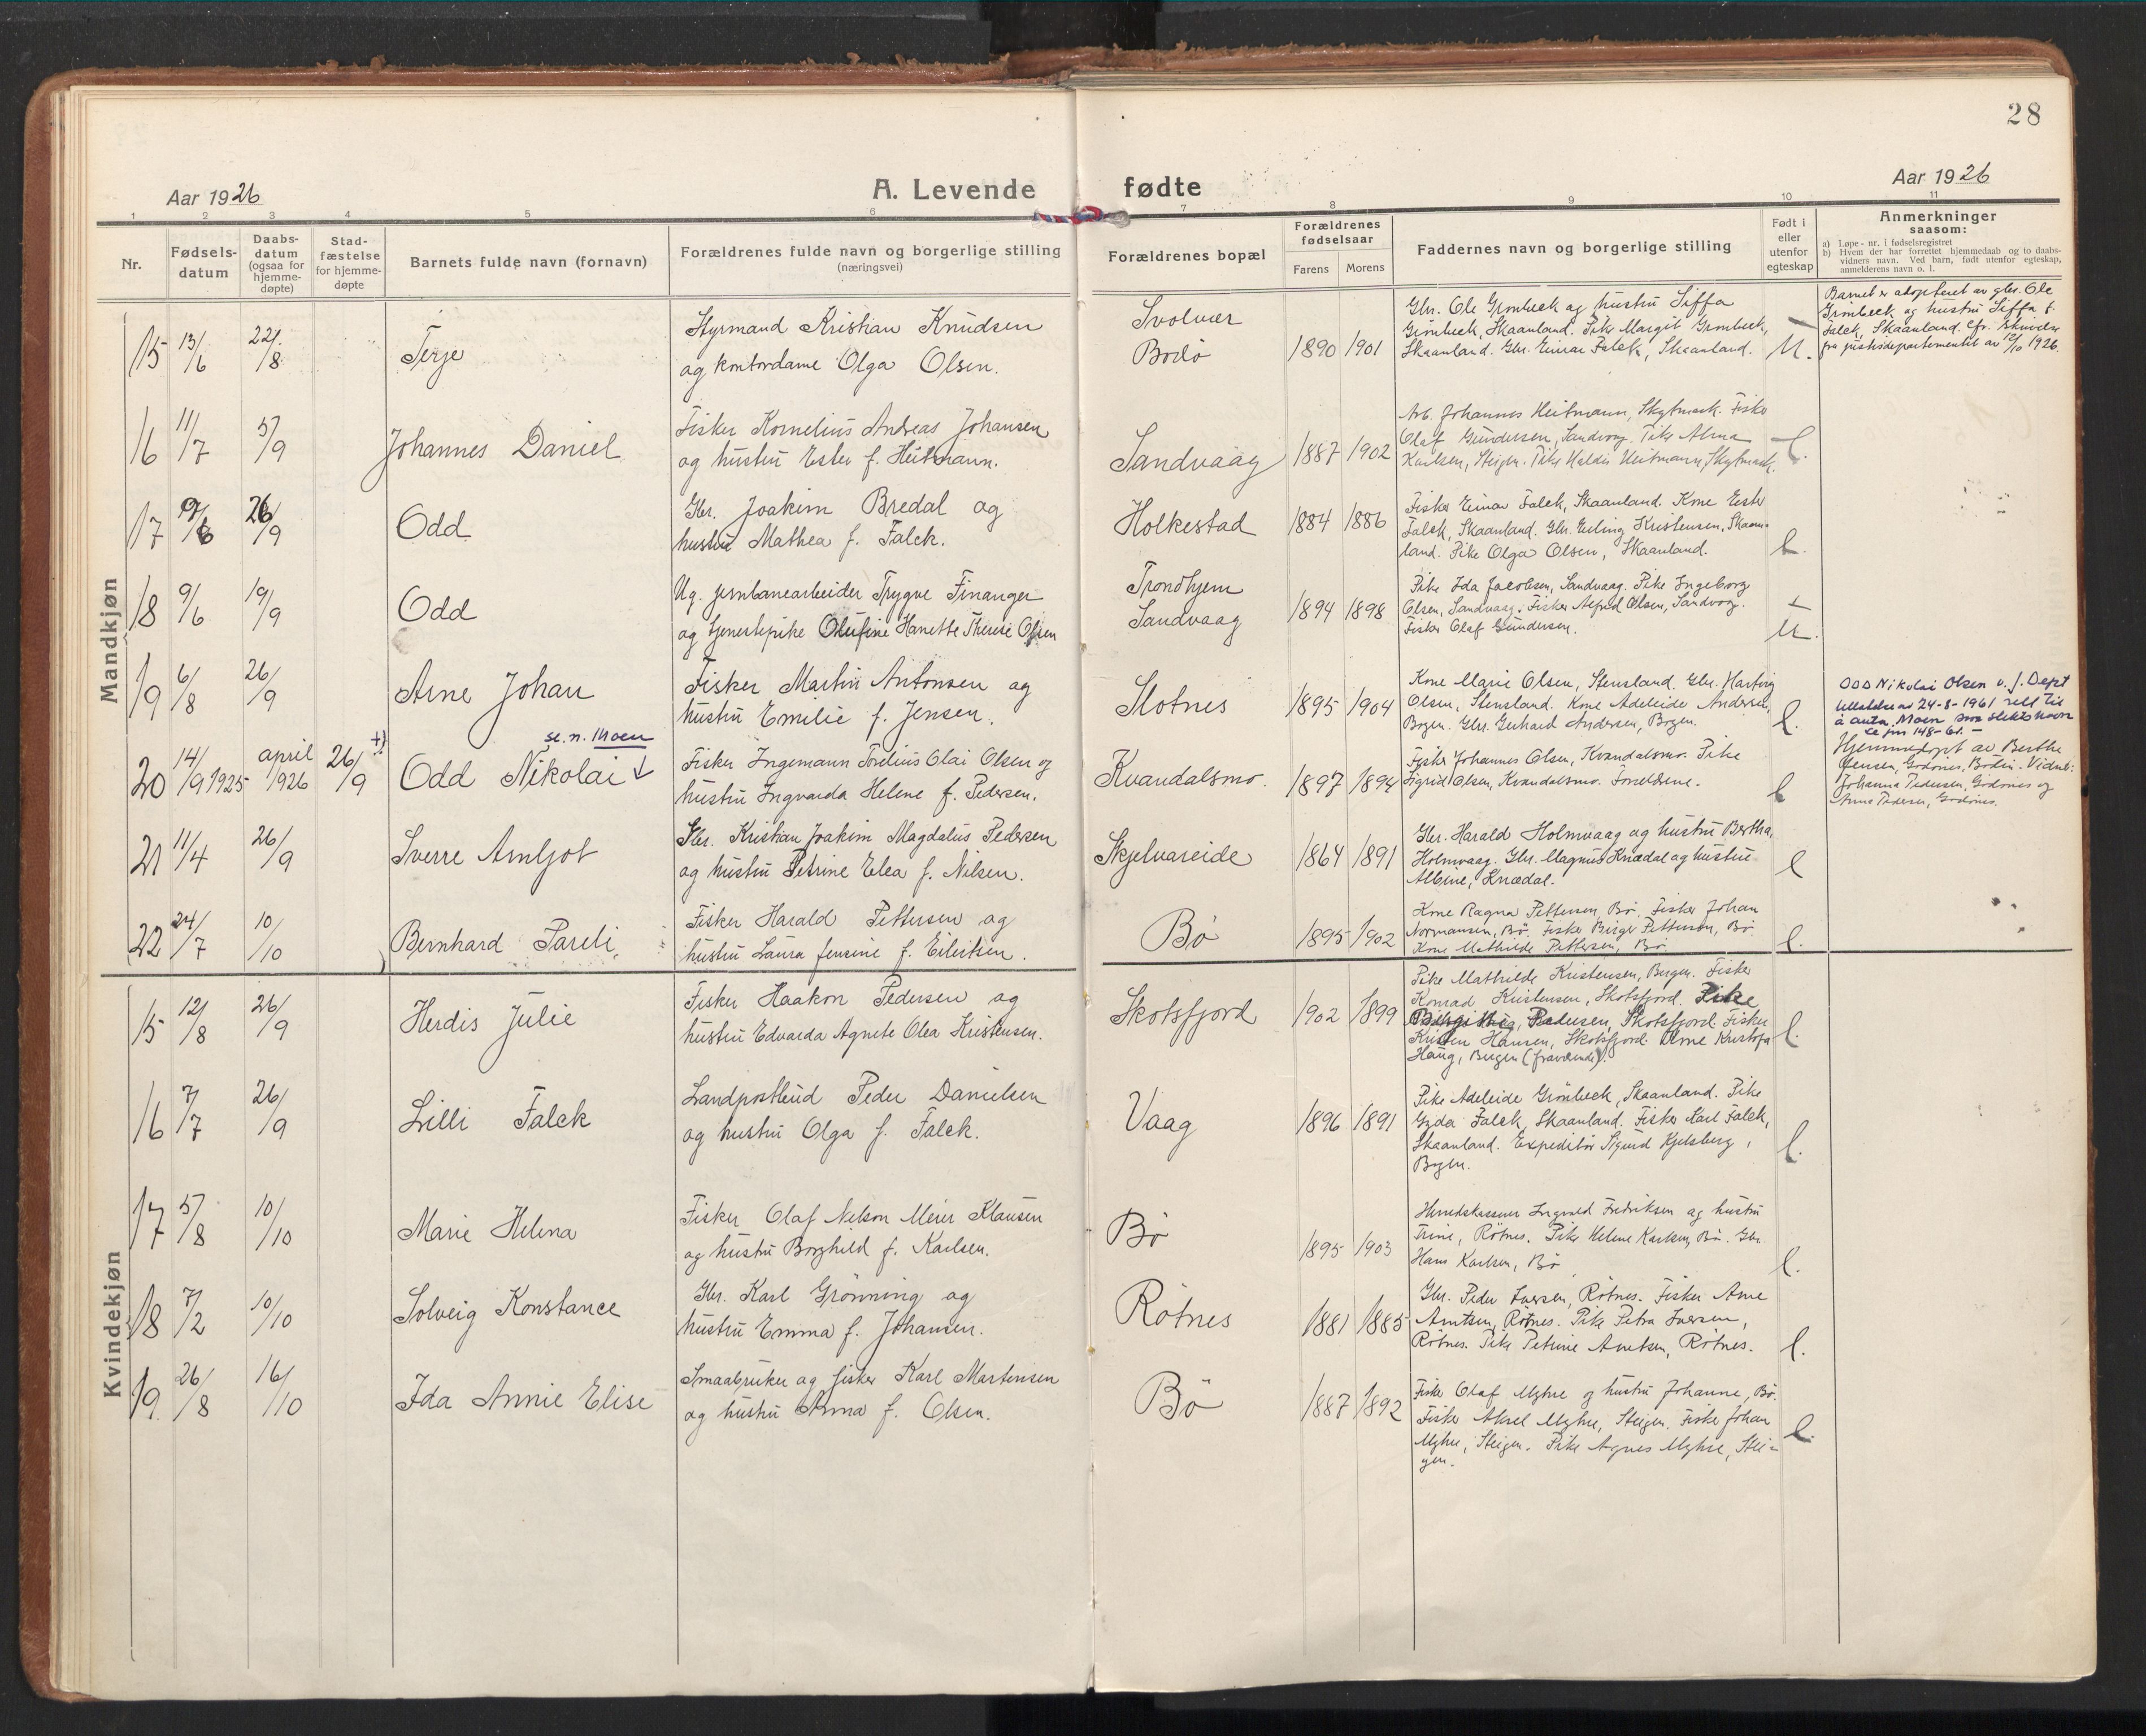 28
Aar 1926
A. Levende fødte
Aar 1926
1 2 3 4 5 6 7 8 9 10 11
Nr.
Fødsels-
datum
Daabs-
datum
(ogsaa for
hjemme-
døpte)
Stad-
fæstelse
for hjemme-
døpte
Barnets fulde navn (fornavn)
Forældrenes fulde navn og borgerlige stilling
(næringsvei)
Forældrenes bopæl
Forældrenes
fødselsaar
Farens Morens
Faddernes navn og borgerlige stilling
Født i
eller
utenfor
egteskap
Anmerkninger
saasom:
a) Løpe-nr. i fødselsregistret
b) Hvem der har forrettet hjemmedaab og to daabs-
vidners navn. Ved barn, født utenfor egteskap,
anmelderens navn o. l.
Mandkjøn
15 13/6 22/8 Terje
Styrmand Kristian Knudsen
og kontordame Olga Olsen.
Svolvær
Bodø
1890 1901
Gbr. Ole Grønbeck og hustru Siffa
Grønbeck, Skaanland. Pike Margit Grønbeck,
Skaanland. Gbr. Einar Falck, Skaanland.
U.
Barnet er adopteret av gbr. Ole
Grønbeck og hustru Siffa f.
Falck, Skaanland. Cfr. skrivelse
fra justisdepartementet av 12/10 1926.
16 11/7 5/9 Johannes Daniel
Fisker Kornelius Andreas Johansen
og hustru Ester f. Heitmann.
Sandvaag
1887 1902
Arb. Johannes Heitmann, Skytmark. Fisker
Olaf Gundersen, Sandvaag. Pike Alma
Karlsen, Steigen. Pike Haldis Heitmann, Skytmark.
17 26/9 Odd
Gbr. Joakim Bredal og
hustru Mathea f. Falck.
Holkestad
1884 1886
Fisker Einar Falck, Skaanland. Kone Ester
Falck, Skaanland. Gbr. Erling Kristensen, Skaan-
land. Pike Olga Olsen, Skaanland.
18 9/6 19/9 Odd
Ug. jernbanearbeider Trygve Finanger
og tjenestepike Olufine Hanette Therese Olsen
Trondhjem
Sandvaag
1894 1898
Pike Ida Jacobsen, Sandvaag. Pike Ingeborg
Olsen, Sandvaag. Fisker Alfred Olsen, Sandvaag.
Fisker Olaf Gundersen.
U.
19 6/8 26/9 Arne Johan
Fisker Martin Antonsen og
hustru Emelie f. Jensen.
Slotnes
1895 1904
Kone Marie Olsen, Stensland. Gbr. Hartvig
Olsen, Stensland. Kone Adeleide Andersen,
Bogen. Gbr. Gerhard Andersen, Bogen.
Odd Nikolai Olsen v. J. Dept
tillatelse av 24-8-1961 rett til
å anta Moen som slektsnavn
se jnr 148-61.-
se. n. Moen
20 14/9 1925 april 1926 26/9 +) Odd Nikolai
Fisker Ingemann Toselius Olai Olsen og
hustru Ingvarda Helene f. Pedersen.
Kvandalsmo.
1897 1894
Fisker Johannes Olsen, Kvandalsmo. Pike
Sigrid Olsen, Kvandalsmo. Forældrene.
Hjemmedøpt av Berthe
Jensen, Godønes, Bodin. Vidner:
Johanna Pedersen, Godønes og
Anna Pedersen, Godønes.
21 11/4 26/9 Sverre Arnljot
Gbr. Kristian Joakim Magdalus Pedersen
og hustru Petrine Elea f. Nilsen.
Skjelvareide
1864 1891
Gbr. Harald Holmvaag og hustru Bertha,
Holmvaag. Gbr. Magnus Knædal og hustru
Albine, Knædal.
22 24/7 10/10 Bernhard Pareli
Fisker Harald Pettersen og
hustru Laura Jensine f. Eilertsen.
Bø
1895 1902
Kone Ragna Pettersen, Bø. Fisker Johan
Normansen, Bø. Fisker Birger Pettersen, Bø.
Kone Mathilde Pettersen, Bø.
Kvindekjøn
15 12/8 26/9 Herdis Julie
Fisker Haakon Pedersen og
hustru Edvarda Agnete Olea Kristensen.
Skotsfjord
1902 1899
Pike Mathilde Kristensen, Bergen. Fisker
Konrad Kristensen, Skotsfjord. Pike
Pedersen, Skotsfjord. Fisker
Kristen Hansen, Skotsfjord. Kristofa
Haug, Bergen (fraværende).
16 7/7 26/9 Lilli Falck
Landpostbud Peder Danielsen
og hustru Olga f. Falck.
Vaag
1896 1891
Pike Adeleide Grønbeck, Skaanland. Pike
Gyda Falck, Skaanland. Fisker Karl Falck,
Skaanland. Expeditør Sigurd Kjelsberg,
Bogen.
17 5/8 10/10 Marie Helena
Fisker Olaf Nelson Meier Klausen
og hustru Borghild f. Karlsen.
Bø
1895 1903
Herredskasserer Ingvald Fredriksen og hustru
Trine, Røtnes. Pike Helene Karlsen, Bø. Gbr.
Hans Karlsen, Bø
18 7/2 10/10 Solveig Konstance
Gbr. Karl Grønning og
hustru Emma f. Johansen.
Røtnes
1881 1885
Gbr. Peder Iversen, Røtnes. Fisker Arne
Arntsen, Røtnes. Pike Petra Iversen,
Røtnes. Pike Petrine Arntsen, Røtnes.
19. 26/8 16/10 Ida Annie Elise
Smaabruker og fisker Karl Martinsen
og hustru Anna f. Olsen.
Bø
1887 1892
Fisker Olaf Myhre og hustru Johanne, Bø.
Fisker Aksel Myhre, Steigen. Fisker Johan
Myhre, Steigen. Pike Agnes Myhre, Stei-
gen.